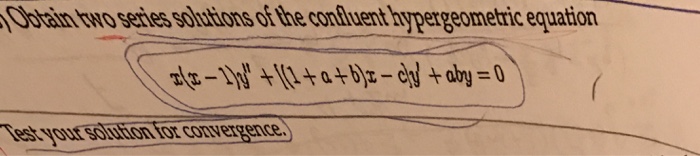 ) Obtain two series solutions of the confluent hypergeometric equation
x(x − 1)y'' + [(1 + a + b)x − c]y' + aby = 0
Test your solution for convergence.